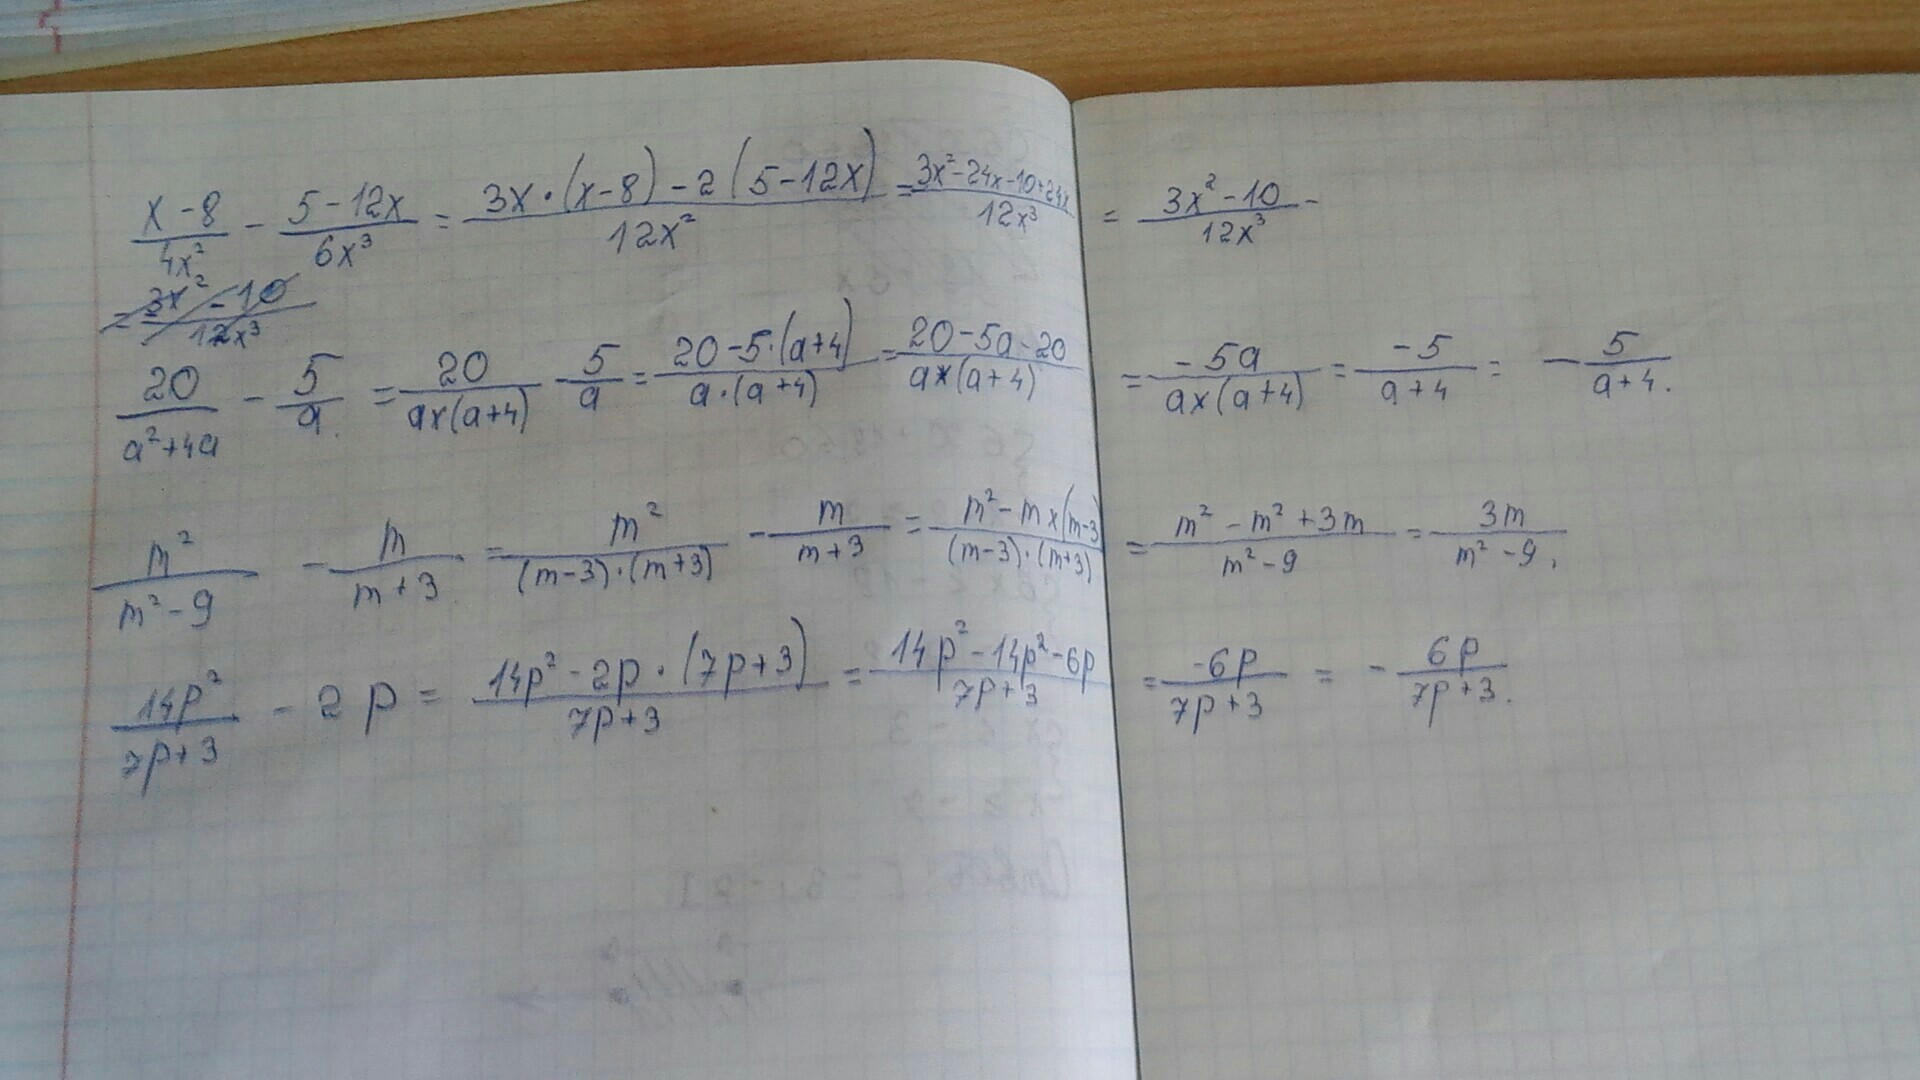 (x-8)/(4x²) - (5-12x)/(6x³) = (3x·(x-8)-2(5-12x))/(12x²) = (3x²-24x-10+24x)/(12x³) = (3x²-10)/(12x³) -
= (3x²-10)/(12x³)
20/(a²+4a) - 5/a = 20/(a×(a+4)) - 5/a = (20-5·(a+4))/(a·(a+4)) = (20-5a-20)/(a×(a+4)) = (-5a)/(a×(a+4)) = (-5)/(a+4) = - 5/(a+4).
m²/(m²-9) - m/(m+3) = m²/((m-3)·(m+3)) - m/(m+3) = (m²-m×(m-3)/((m-3)·(m+3)) = (m²-m²+3m)/(m²-9) = 3m/(m²-9).
14p²/(7p+3) - 2p = (14p²-2p·(7p+3))/(7p+3) = (14p²-14p²-6p)/(7p+3) = (-6p)/(7p+3) = - 6p/(7p+3).